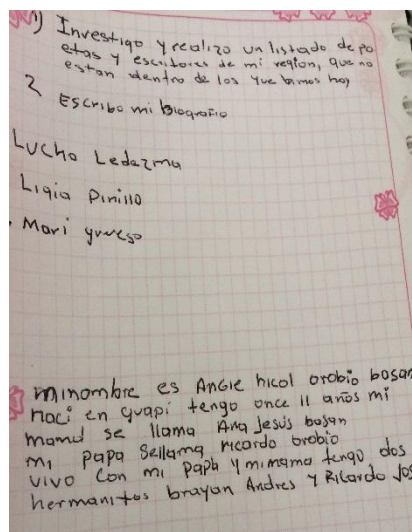 1) Investigo y realizo un listado de po
etas y escritores de mi region, que no
estan dentro de los que bimos hoy
2
Escribo mi biografio
Lucho Ledezma
Ligia Pinillo
Mari
minombre es Angie nicol orobio bosan
naci en guapi tengo once 11 años mi
mamá se llama Ana Jesús bosan
mi papa sellama ricardo orobio
vivo con mi papa y mimama tengo dos
hermanitos brayan Andres y Ricardo Jos